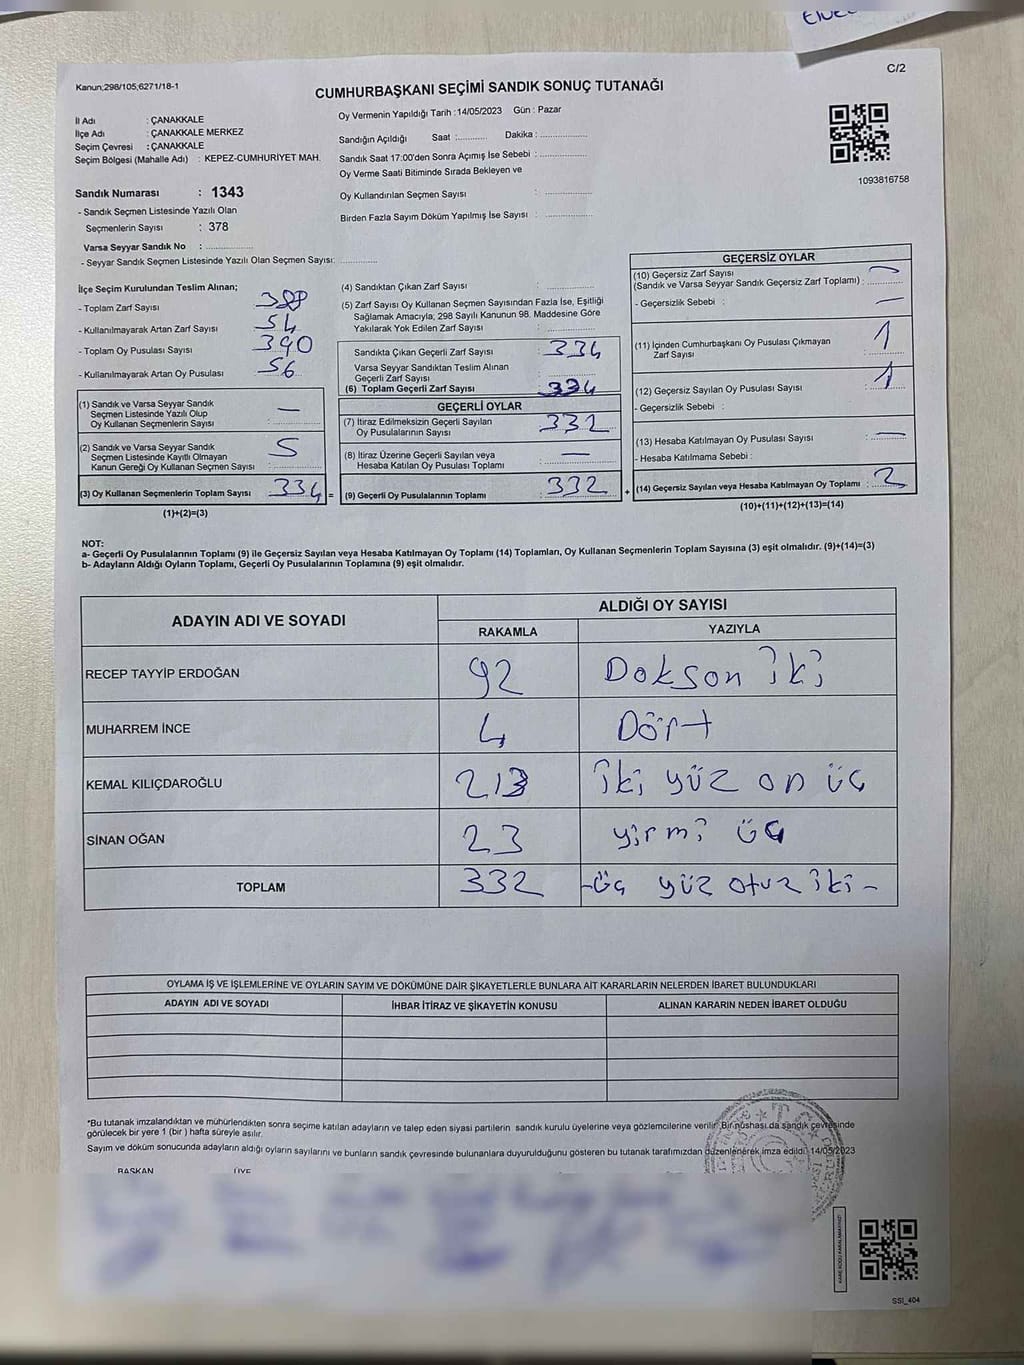 C/2
Kanun;298/105;6271/18-1
CUMHURBAŞKANI SEÇİMİ SANDIK SONUÇ TUTANAĞI
İl Adı : ÇANAKKALE
İlçe Adı : ÇANAKKALE MERKEZ
Seçim Çevresi : ÇANAKKALE
Seçim Bölgesi (Mahalle Adı) : KEPEZ-CUMHURİYET MAH.
Sandık Numarası : 1343
- Sandık Seçmen Listesinde Yazılı Olan
Seçmenlerin Sayısı : 378
Varsa Seyyar Sandık No : ..............
- Seyyar Sandık Seçmen Listesinde Yazılı Olan Seçmen Sayısı: ............
Oy Vermenin Yapıldığı Tarih :14/05/2023 Gün : Pazar
Sandığın Açıldığı Saat :.......... Dakika : ..............
Sandık Saat 17:00'den Sonra Açımış İse Sebebi : ..............
Oy Verme Saati Bitiminde Sırada Bekleyen ve
Oy Kullandırılan Seçmen Sayısı : ..............
Birden Fazla Sayım Döküm Yapılmış İse Sayısı : ..............
1093816758
İlçe Seçim Kurulundan Teslim Alınan;
- Toplam Zarf Sayısı 388
- Kullanılmayarak Artan Zarf Sayısı 54
- Toplam Oy Pusulası Sayısı 390
- Kullanılmayarak Artan Oy Pusulası 56
(1) Sandık ve Varsa Seyyar Sandık
Seçmen Listesinde Yazılı Olup
Oy Kullanan Seçmenlerin Sayısı : —
(2) Sandık ve Varsa Seyyar Sandık
Seçmen Listesinde Kayıtlı Olmayan
Kanun Gereği Oy Kullanan Seçmen Sayısı : 5
(3) Oy Kullanan Seçmenlerin Toplam Sayısı : 334 =
(1)+(2)=(3)
(4) Sandıktan Çıkan Zarf Sayısı : ..............
(5) Zarf Sayısı Oy Kullanan Seçmen Sayısından Fazla İse, Eşitliği
Sağlamak Amacıyla; 298 Sayılı Kanunun 98. Maddesine Göre
Yakılarak Yok Edilen Zarf Sayısı : ..............
Sandıkta Çıkan Geçerli Zarf Sayısı : 334
Varsa Seyyar Sandıktan Teslim Alınan
Geçerli Zarf Sayısı
(6) Toplam Geçerli Zarf Sayısı : 334
GEÇERLİ OYLAR
(7) İtiraz Edilmeksizin Geçerli Sayılan
Oy Pusulalarının Sayısı : 332
(8) İtiraz Üzerine Geçerli Sayılan veya
Hesaba Katılan Oy Pusulası Toplamı : —
(9) Geçerli Oy Pusulalarının Toplamı : 332 +
GEÇERSİZ OYLAR
(10) Geçersiz Zarf Sayısı
(Sandık ve Varsa Seyyar Sandık Geçersiz Zarf Toplamı) : —
- Geçersizlik Sebebi : —
(11) İçinden Cumhurbaşkanı Oy Pusulası Çıkmayan
Zarf Sayısı : 1
(12) Geçersiz Sayılan Oy Pusulası Sayısı : 1
- Geçersizlik Sebebi :
(13) Hesaba Katılmayan Oy Pusulası Sayısı : —
- Hesaba Katılmama Sebebi :
(14) Geçersiz Sayılan veya Hesaba Katılmayan Oy Toplamı : 2
(10)+(11)+(12)+(13)=(14)
NOT:
a- Geçerli Oy Pusulalarının Toplamı (9) ile Geçersiz Sayılan veya Hesaba Katılmayan Oy Toplamı (14) Toplamları, Oy Kullanan Seçmenlerin Toplam Sayısına (3) eşit olmalıdır. (9)+(14)=(3)
b- Adayların Aldığı Oyların Toplamı, Geçerli Oy Pusulalarının Toplamına (9) eşit olmalıdır.
ADAYIN ADI VE SOYADI ALDIĞI OY SAYISI
RAKAMLA YAZIYLA
RECEP TAYYİP ERDOĞAN 92 Dokson iki
MUHARREM İNCE 4 Dört
KEMAL KILIÇDAROĞLU 213 iki yüz on üç
SİNAN OĞAN 23 yirmi üç
TOPLAM 332 -üç yüz otuz iki-
OYLAMA İŞ VE İŞLEMLERİNE VE OYLARIN SAYIM VE DÖKÜMÜNE DAİR ŞİKAYETLERLE BUNLARA AİT KARARLARIN NELERDEN İBARET BULUNDUKLARI
ADAYIN ADI VE SOYADI İHBAR İTİRAZ VE ŞİKAYETİN KONUSU ALINAN KARARIN NEDEN İBARET OLDUĞU
*Bu tutanak imzalandıktan ve mühürlendikten sonra seçime katılan adayların ve talep eden siyasi partilerin sandık kurulu üyelerine veya gözlemcilerine verilir. Bir nüshası da sandık çevresinde
görülecek bir yere 1 (bir ) hafta süreyle asılır.
Sayım ve döküm sonucunda adayların aldığı oyların sayılarını ve bunların sandık çevresinde bulunanlara duyurulduğunu gösteren bu tutanak tarafımızdan düzenlenerek imza edildi. 14/05/2023
BAŞKAN ÜYE
SSI_404